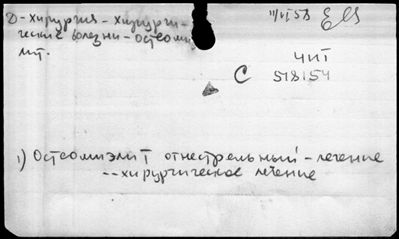 Д-хирургия - хирурги-
ческие болезни - остеоми
лит.
11/VI 58
ЧИТ
С 518154
1) Остеомиэлит огнестрельный - лечение
-- хирургическое лечение